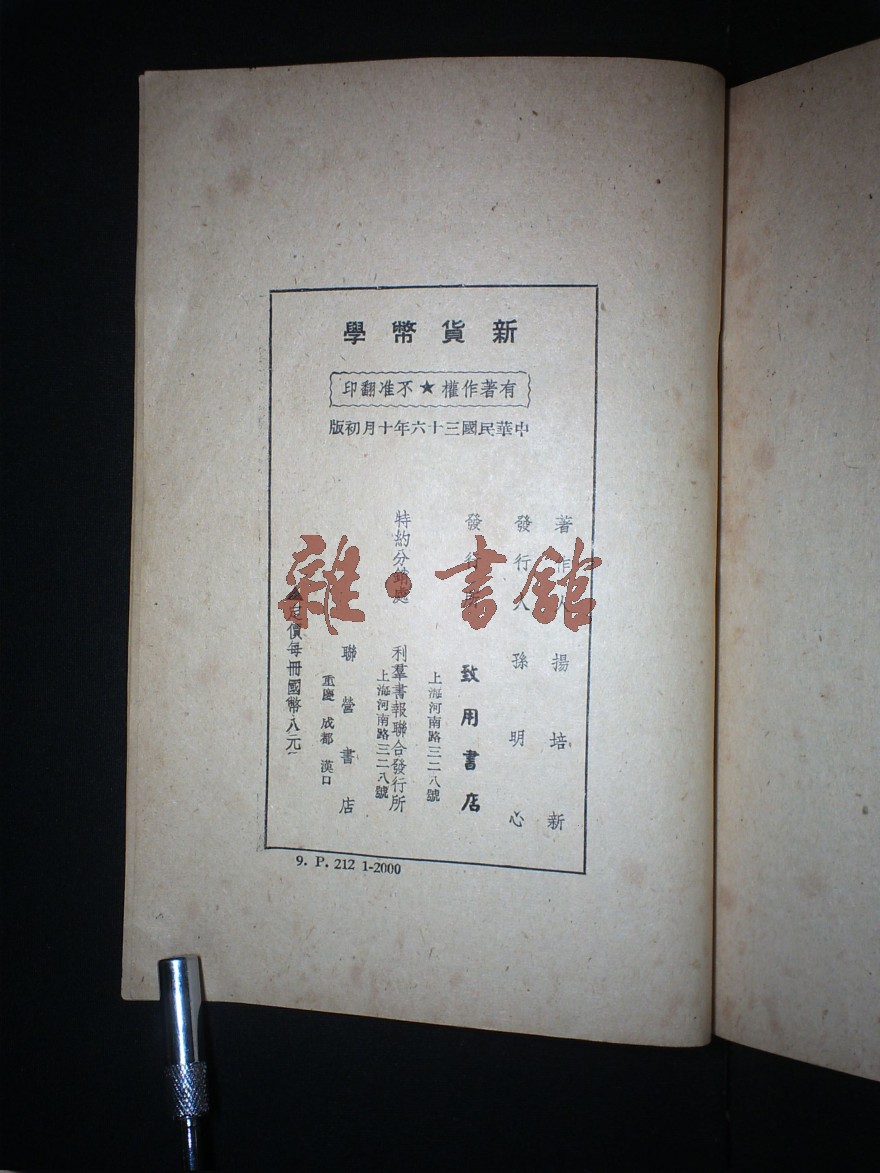 新貨幣學
有著作權★不准翻印
中華民國三十六年十月初版
著作人 揚培新
發行人 孫明心
發行所 致用書店
上海河南路三二八號
特約分銷處 利羣書報聯合發行所
上海河南路三二八號
聯營書店
重慶 成都 漢口
▲定價每冊國幣八元
9. P. 212 1-2000
雜·書館